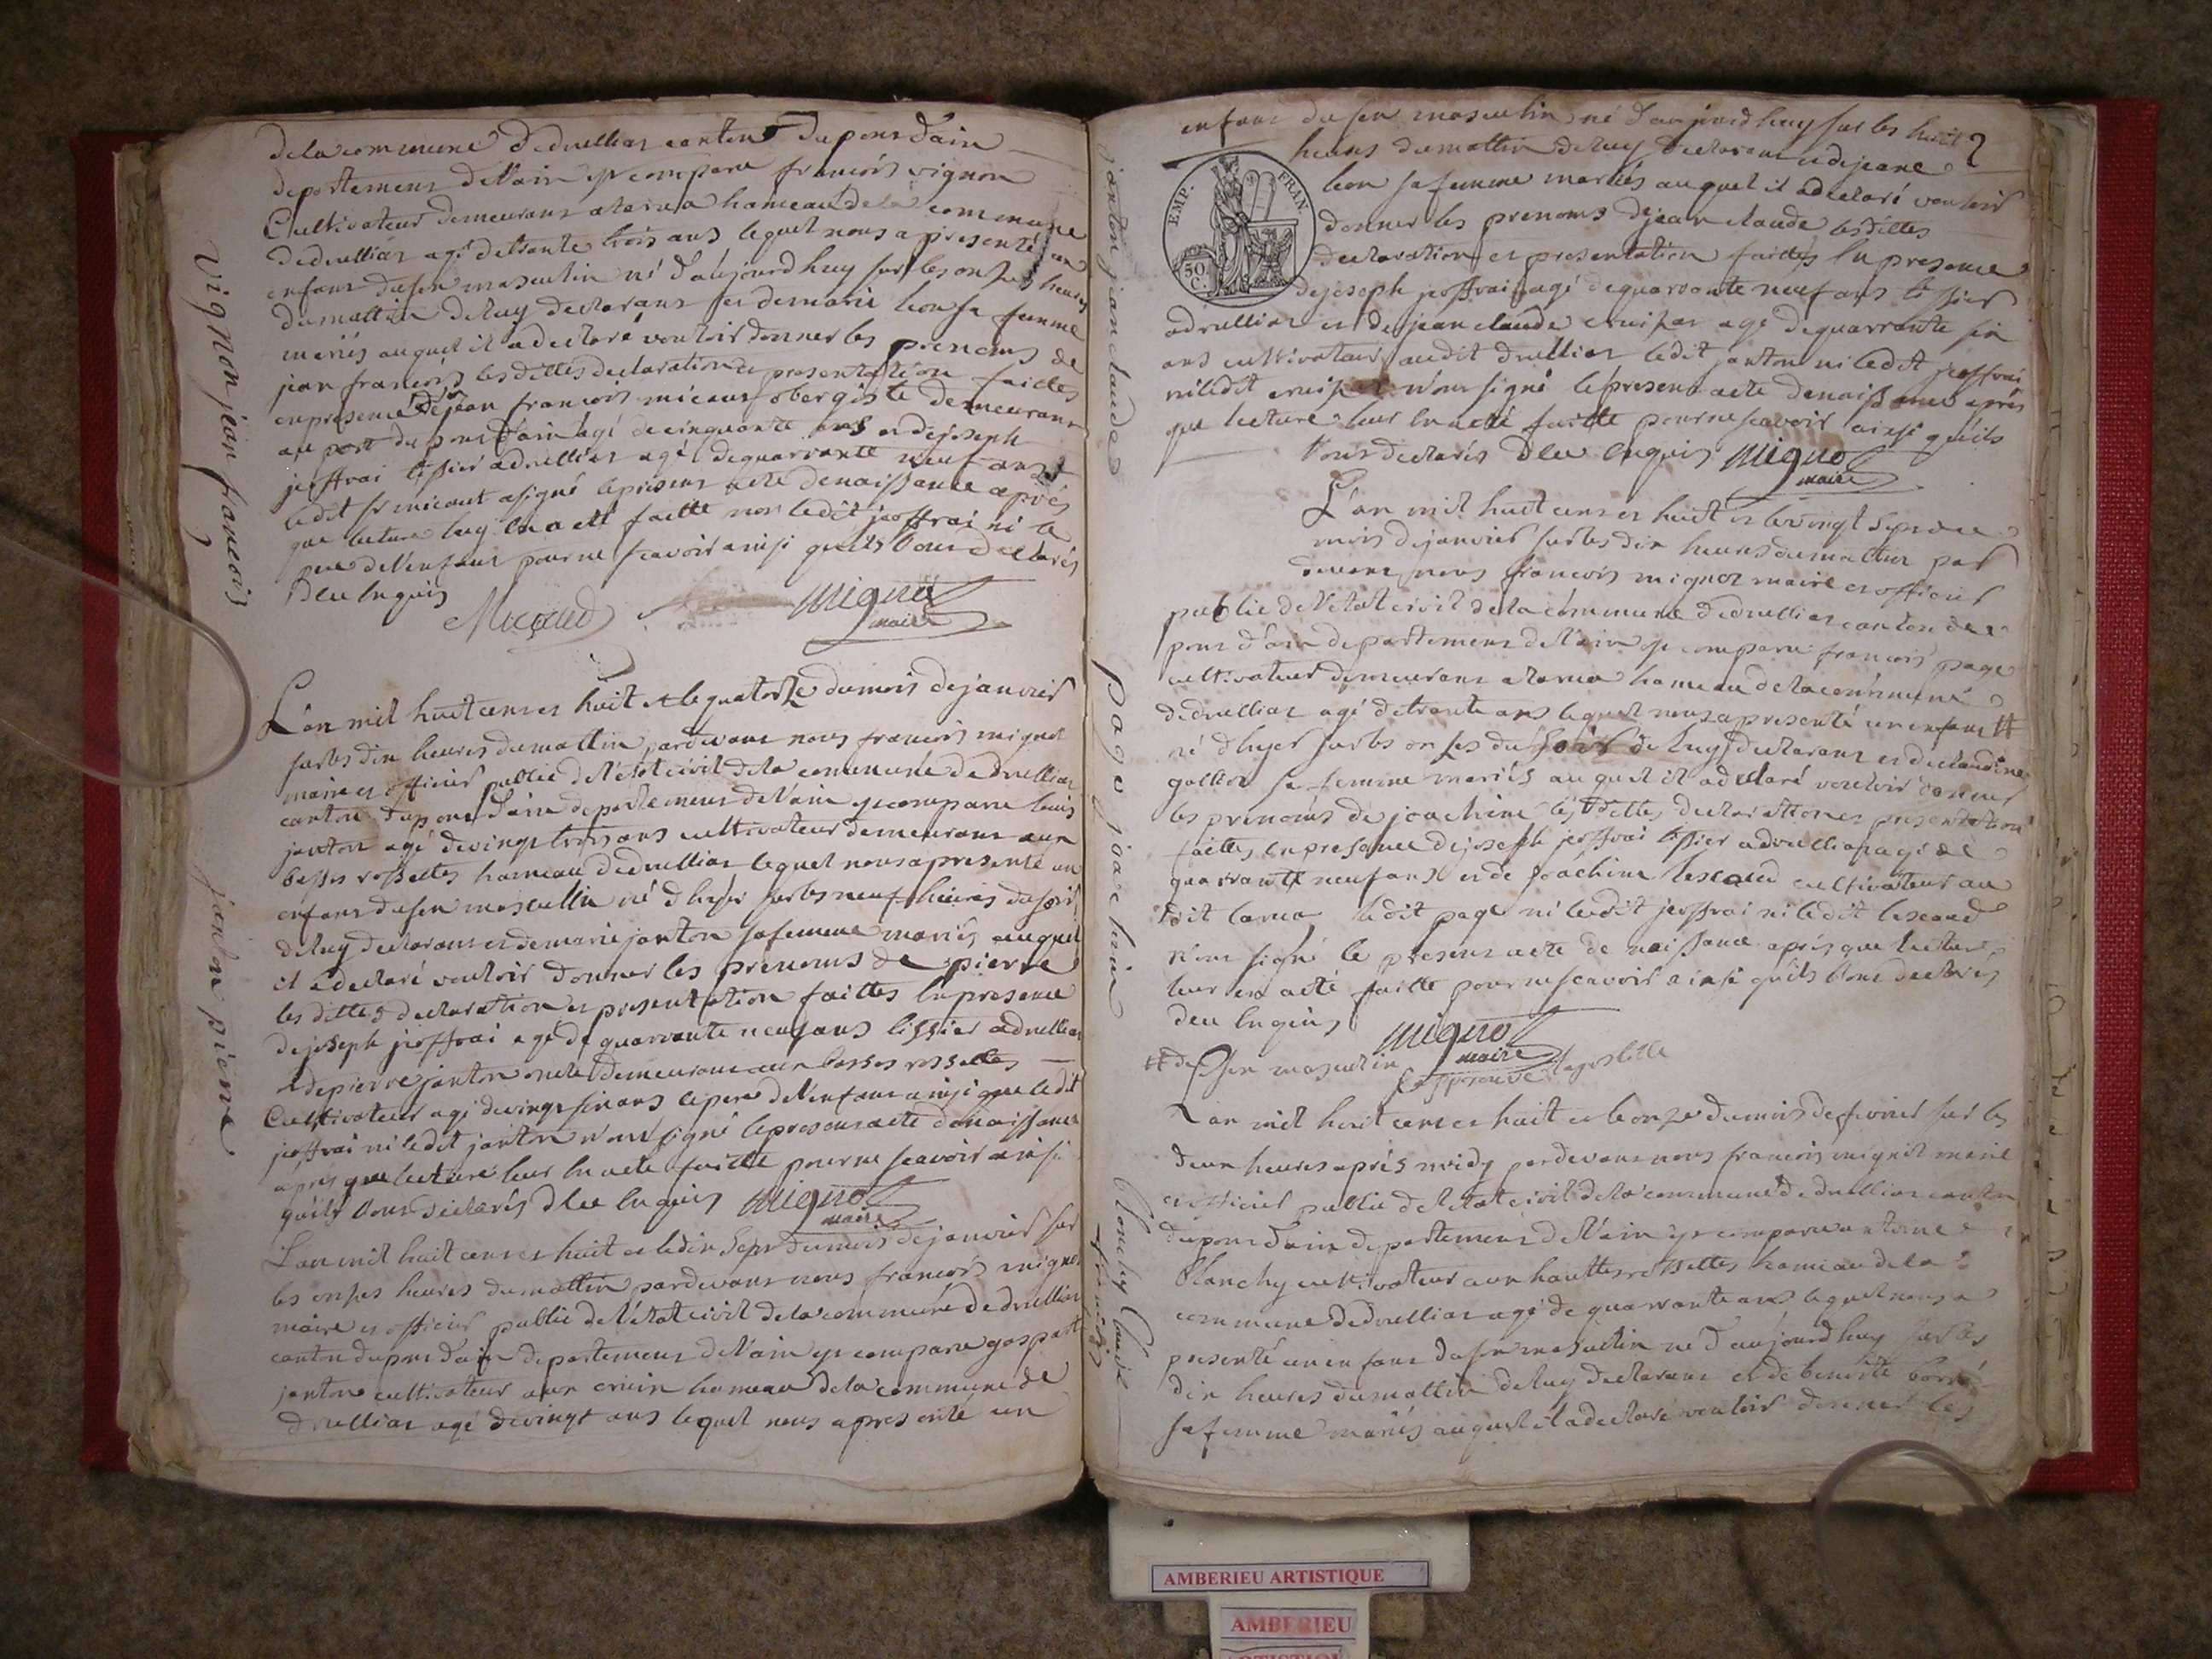 Vignon jean francois
janton pierre
de la commune de druillias canton du pons d'ain
departemens de l'ain est comparu francois vignon
Cultivateur demeurans a hameau de la commune
de druillias agé de trante trois ans lequel nous a presenté un
enfans du sex masculin né d'aujourd huy sur les onses heures
du mattin de luy declarans et de marie leon sa femme
mariés auquel il a declaré vouloir donner les prenoms de
jean francois les dittes declaration et presentation faittes
en presence de jean francois micaut obergiste demeurans
au port du pons d'ain agé de cinquante ans et de joseph
jeoffrai tissier a druillias agé de quarrante neuf ans
ledit sr micaut a signé le presens acte de naissance après
que lecture luy en a eté faitte non ledit jeoffrai ni le
pere de l'enfans pour ne scavoir ainsi qu'ils l'ons declarés
d'eu enquis
Micoud
mignot
maire
L'an mil huit cens et huit et le quatorze du mois de janvier
sur les dix heures du mattin pardevans nous francois mignot
maire et officier public de l'etat civil de la commune de druillias
canton du pons d'ain departemens de l'ain est comparu louis
janton agé de vingt trois ans cultivateur demeurans aux
basses rossettes hameau de druillias lequel nous a presenté un
enfans du sex masculin né d'hyer sur les neuf heures du soir
de luy declarans et de marie janton sa femme mariés auquel
il a declaré vouloir donner les prenoms de pierre
les dittes declaration et presentation faittes en presence
de joseph jeoffrai agé de quarrante neuf ans tissier a druillias
et de pierre janton oncle demeurans aux basses rossettes
Cultivateur agé de vingt six ans le pere de l'enfans ainsi que ledit
jeoffrai ni ledit janton n'ons signé le presens acte de naissance
après que lecture leur en a eté faitte pour ne scavoir ainsi
qu'ils l'ons declarés d'eu enquis mignot
maire
L'an mil huit cens et huit et le dix sept du mois de janvier sur
les onses heures du mattin pardevans nous francois mignot
maire et officier public de l'état civil de la commune de druillias
canton du pons d'ain departemens de l'ain est comparu gaspart
janton cultivateur aux hameau de la commune de
druillias agé de vingt ans lequel nous a presenté un
janton jean claude
page joachim
blanchy
enfans du sex masculin né d'aujourd huy sur les huit
heures du mattin de luy declarans et de jeane
leon sa femme mariés auquel il a declaré vouloir
donner les prenoms de jean claude les dittes
declaration et presentation faittes en presence
EMP. FRAN
50 C.
de joseph jeoffrai agé de quarrante neuf ans tissier
a druillias et de jean claude agé de quarrante six
ans cultivateur audit druillias ledit janton ni ledit jeoffrai
ni ledit n'ons signé le presens acte de naissance après
que lecture leur en a eté faitte pour ne scavoir ainsi qu'ils
l'ons declarés d'eu enquis mignot
maire
L'an mil huit cens et huit et le vingt sept du
mois de janvier sur les dix heures du mattin par
devans nous francois mignot maire et officier
public de l'état civil de la commune de druillias canton de
pons d'ain departemens de l'ain est comparu francois page
cultivateur demeurans a hameau de la commune
de druillias agé de trante ans lequel nous a presenté un enfans #
né d'hyer sur les onses du soir de luy declarans et de claudine
sa femme mariés auquel il a declaré vouloir donner
les prenoms de joachim les dittes declaration et presentation
faittes en presence de joseph jeoffrai tissier a druillias agé de
quarrante neuf ans et de joachim cultivateur au
dit ledit page ni ledit jeoffrai ni ledit
n'ons signé le presens acte de naissance après que lecture
leur en a eté faitte pour ne scavoir ainsi qu'ils l'ons declarés
d'eu enquis mignot
maire
# de sex masculin
approuvé l'apostille
L'an mil huit cens et huit et le onze du mois de fevrier sur les
deux heures après midy pardevans nous francois mignot maire
et officier public de l'état civil de la commune de druillias canton
du pons d'ain departemens de l'ain est comparu antoine
blanchy cultivateur aux hauttes rossettes hameau de la
commune de druillias agé de quarrante ans lequel nous a
presenté un enfans du sex masculin né d'aujourd huy sur les
dix heures du mattin de luy declarans et de benoite
sa femme mariés auquel il a declaré vouloir donner les
AMBERIEU ARTISTIQUE
AMBERIEU
ARTISTIQUE